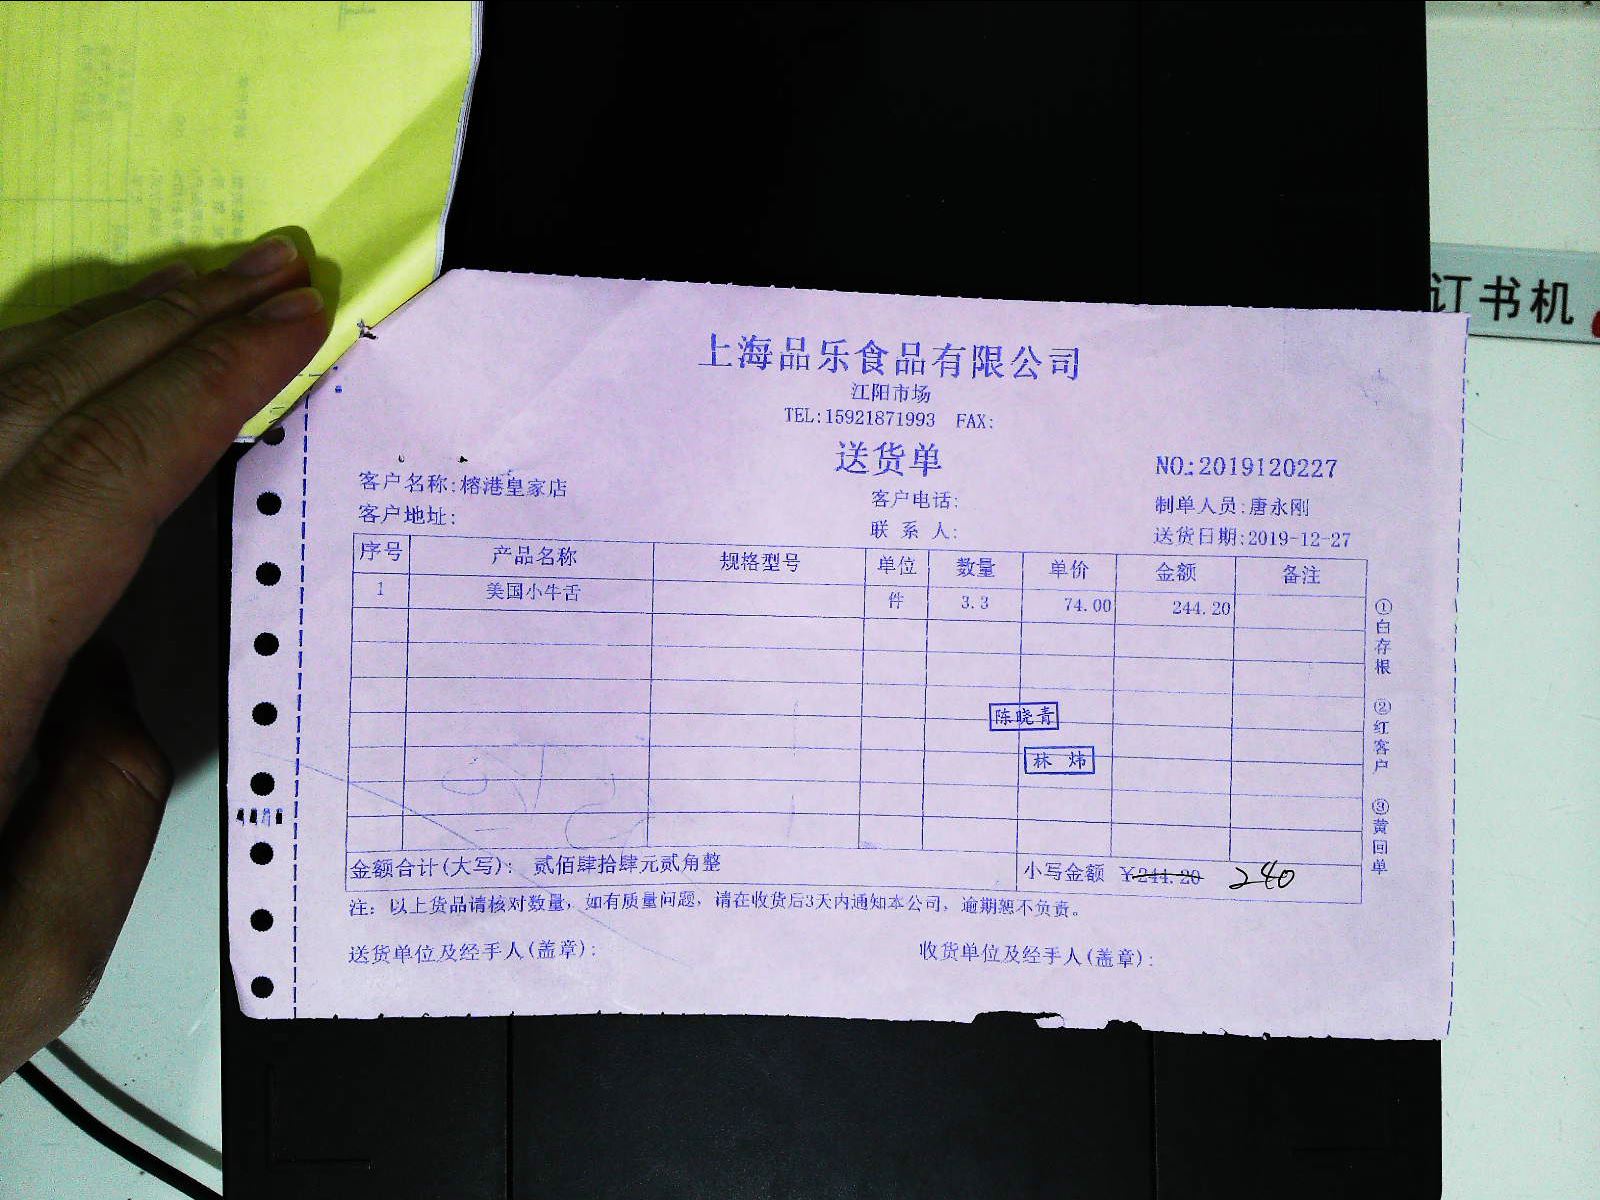 订书机
上海品乐食品有限公司
江阳市场
TEL:15921871993 FAX:
送货单
NO.:2019120227
客户名称:榕港皇家店
客户电话:
制单人员:唐永刚
客户地址:
联 系 人:
送货日期:2019-12-27
序号 产品名称 规格型号 单位 数量 单价 金额 备注
1 美国小牛舌 件 3.3 74.00 244.20
陈晓青
林 炜
金额合计(大写): 贰佰肆拾肆元贰角整 小写金额 ¥244.20 240
注: 以上货品请核对数量, 如有质量问题, 请在收货后3天内通知本公司, 逾期恕不负责。
送货单位及经手人(盖章): 收货单位及经手人(盖章):
①白存根 ②红客户 ③黄回单